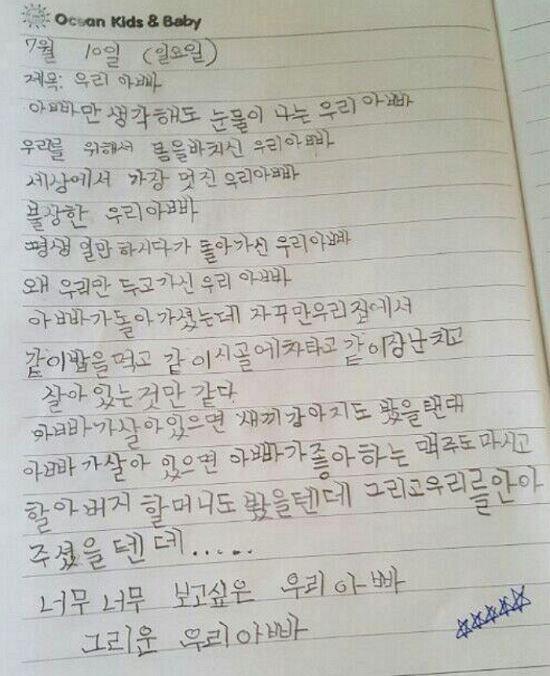 Ocean Kids & Baby
7월 10일 (일요일)
제목: 우리 아빠
아빠만 생각해도 눈물이 나는 우리 아빠
우리를 위해서 몸을바치신 우리아빠
세상에서 가장 멋진 우리아빠
불상한 우리아빠
평생 일만 하시다가 돌아가신 우리아빠
왜 우리만 두고가신 우리 아빠
아빠가돌아가셨는데 자꾸만우리집에서
같이밥을먹고 같이시골에차타고 같이장난치고
살아있는것만 같다
아빠가살아있으면 새끼강아지도 봤을탠대
아빠가살아 있으면 아빠가좋아하는 맥주도마시고
할아버지 할머니도 봤을텐데 그리고우리를안아
주셨을텐데......
너무너무 보고싶은 우리아빠
그리운 우리아빠